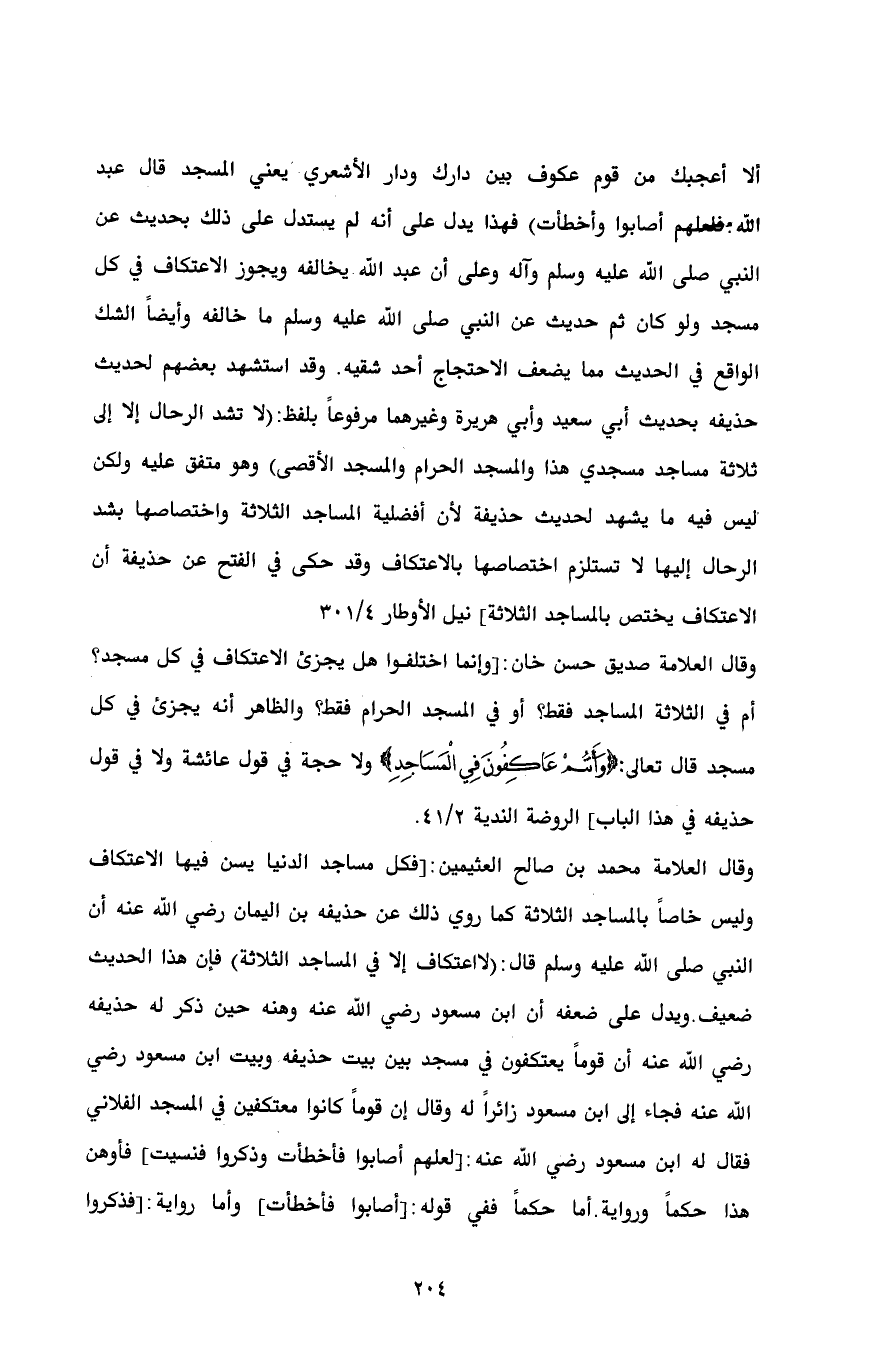 ألا أعجبك من قوم عكوف بين دارك ودار الأشعري يعني المسجد قال عبد
الله: فلعلهم أصابوا وأخطأت) فهذا يدل على أنه لم يستدل على ذلك بحديث عن
النبي صلى الله عليه وسلم وآله وعلى أن عبد الله يخالفه ويجوز الاعتكاف في كل
مسجد ولو كان ثم حديث عن النبي صلى الله عليه وسلم ما خالفه وأيضاً الشك
الواقع في الحديث مما يضعف الاحتجاج أحد شقيه. وقد استشهد بعضهم لحديث
حذيفه بحديث أبي سعيد وأبي هريرة وغيرهما مرفوعاً بلفظ:(لا تشد الرحال إلا إلى
ثلاثة مساجد مسجدي هذا والمسجد الحرام والمسجد الأقصى) وهو متفق عليه ولكن
ليس فيه ما يشهد لحديث حذيفة لأن أفضلية المساجد الثلاثة واختصاصها بشد
الرحال إليها لا تستلزم اختصاصها بالاعتكاف وقد حكى في الفتح عن حذيفة أن
الاعتكاف يختص بالمساجد الثلاثة] نيل الأوطار ٣٠١/٤
وقال العلامة صديق حسن خان:[وإنما اختلفوا هل يجزئ الاعتكاف في كل مسجد؟
أم في الثلاثة المساجد فقط؟ أو في المسجد الحرام فقط؟ والظاهر أنه يجزئ في كل
مسجد قال تعالى:﴿وَأَنتُمْ عَاكِفُونَ فِي الْمَسَاجِدِ﴾ ولا حجة في قول عائشة ولا في قول
حذيفه في هذا الباب] الروضة الندية ٤١/٢.
وقال العلامة محمد بن صالح العثيمين:[فكل مساجد الدنيا يسن فيها الاعتكاف
وليس خاصاً بالمساجد الثلاثة كما روي ذلك عن حذيفه بن اليمان رضي الله عنه أن
النبي صلى الله عليه وسلم قال:(لااعتكاف إلا في المساجد الثلاثة) فإن هذا الحديث
ضعيف.ويدل على ضعفه أن ابن مسعود رضي الله عنه وهنه حين ذكر له حذيفه
رضي الله عنه أن قوماً يعتكفون في مسجد بين بيت حذيفه وبيت ابن مسعود رضي
الله عنه فجاء إلى ابن مسعود زائراً له وقال إن قوماً كانوا معتكفين في المسجد الفلاني
فقال له ابن مسعود رضي الله عنه:[لعلهم أصابوا فأخطأت وذكروا فنسيت] فأوهن
هذا حكماً ورواية.أما حكماً ففي قوله:[أصابوا فأخطأت] وأما رواية:[فذكروا
٢٠٤